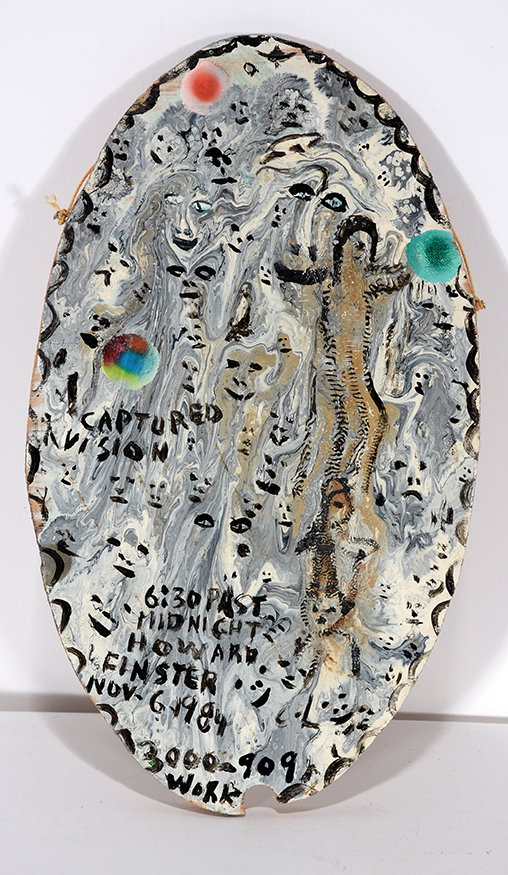 I CAPTURED
A VISION
6:30 PAST
MIDNIGHT
HOWARD
FINSTER
NOV. 6 1984
3000-909
WORK